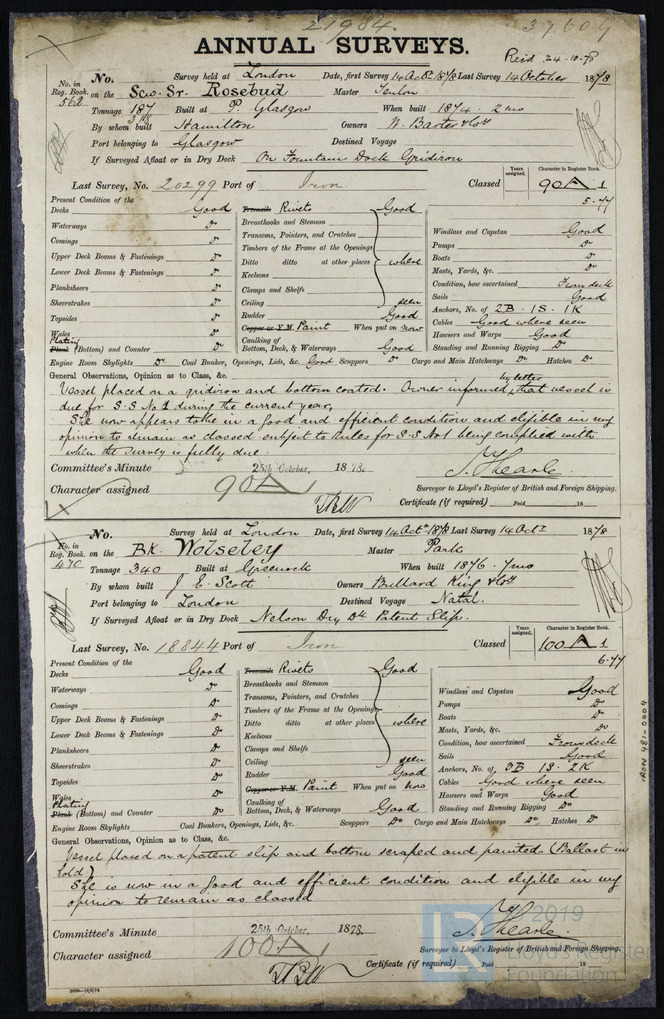 21984.
37.609
ANNUAL SURVEYS.
Reid 24-10-78
No. in Reg. Book. 562
No. Survey held at London Date, first Survey 14 Octr 1878 Last Survey 14 October 1878
on the Scw. Sr. Rosebud Master
Tonnage 187 Built at P. Glasgow When built 1874 - 2mo
By whom built Hamilton Owners W. Baxter & Co
Port belonging to Glasgow Destined Voyage
If Surveyed Afloat or in Dry Dock On Fountain Dock Gridiron
Years assigned. Character in Register Book.
Last Survey, No. 20299 Port of Iron. Classed 90 A 1
5.77
Present Condition of the
Decks Good
Waterways Do
Comings Do
Upper Deck Beams & Fastenings Do
Lower Deck Beams & Fastenings Do
Planksheers Do
Sheerstrakes Do
Topsides Do
Wales Do
Plating
Plank (Bottom) and Counter Do
Treenails Rivets Good
Breasthooks and Stemson
Transoms, Pointers, and Crutches
Timbers of the Frame at the Openings
Ditto ditto at other places where
Keelsons
Clamps and Shelfs
Ceiling seen
Rudder Good
Copper or Y.M. Paint When put on now
Caulking of
Bottom, Deck, & Waterways Good
Windlass and Capstan Good
Pumps Do
Boats Do
Masts, Yards, &c. Do
Condition, how ascertained From deck
Sails Good
Anchors, No. of 2B . 1S . 1K
Cables Good where seen
Hawsers and Warps Good
Standing and Running Rigging Do
Engine Room Skylights Do Coal Bunker, Openings, Lids, &c. Good Scuppers Do Cargo and Main Hatchways Do Hatches Do
General Observations, Opinion as to Class, &c.
Vessel placed on a gridiron and bottom coated. Owner informed by letter that vessel is
due for S.S. No 1 during the current year,
She now appears to be in a good and efficient condition and eligible in my
opinion to remain as classed subject to rules for S.S No 1 being complied with
when the survey is fully due.
Committee's Minute 25th October, 1878.
Character assigned 90A
J. Hearle.
Surveyor to Lloyd's Register of British and Foreign Shipping.
Certificate (if required) Paid 18
No. in Reg. Book. 470
No. Survey held at London Date, first Survey 14 Octr 1878 Last Survey 14 Octr 1878
on the Bk. Wolseley Master Park
Tonnage 340 Built at Greenock When built 1876. 7mo
By whom built J. E. Scott Owners Bullard King & Co
Port belonging to London Destined Voyage Natal.
If Surveyed Afloat or in Dry Dock Nelson Dry Dk Patent Slip.
Years assigned. Character in Register Book.
Last Survey, No. 18844 Port of Iron Classed 100 A 1
6.77
Present Condition of the
Decks Good
Waterways Do
Comings Do
Upper Deck Beams & Fastenings Do
Lower Deck Beams & Fastenings Do
Planksheers Do
Sheerstrakes Do
Topsides Do
Wales Do
Plating
Plank (Bottom) and Counter Do
Treenails Rivets Good
Breasthooks and Stemson
Transoms, Pointers, and Crutches
Timbers of the Frame at the Openings
Ditto ditto at other places where
Keelsons
Clamps and Shelfs
Ceiling seen
Rudder Good
Copper or Y.M. Paint When put on now
Caulking of
Bottom, Deck, & Waterways Good
Windlass and Capstan Good
Pumps Do
Boats Do
Masts, Yards, &c. Do
Condition, how ascertained From deck
Sails Good
Anchors, No. of 3B 1S. 2K
Cables Good where seen
Hawsers and Warps Good
Standing and Running Rigging Do
Engine Room Skylights Coal Bunkers, Openings, Lids, &c. Scuppers Do Cargo and Main Hatchways Do, Hatches Do
General Observations, Opinion as to Class, &c.
Vessel placed on a patent slip and bottom scraped and painted (Ballast in
hold)
She is now in a good and efficient condition and eligible in my
opinion to remain as classed
Committee's Minute 25th October, 1878.
Character assigned 100A
J. Hearle.
Surveyor to Lloyd's Register of British and Foreign Shipping.
Certificate (if required) Paid 18
IRON 481-0004
2019
Lloyd's Register
Foundation